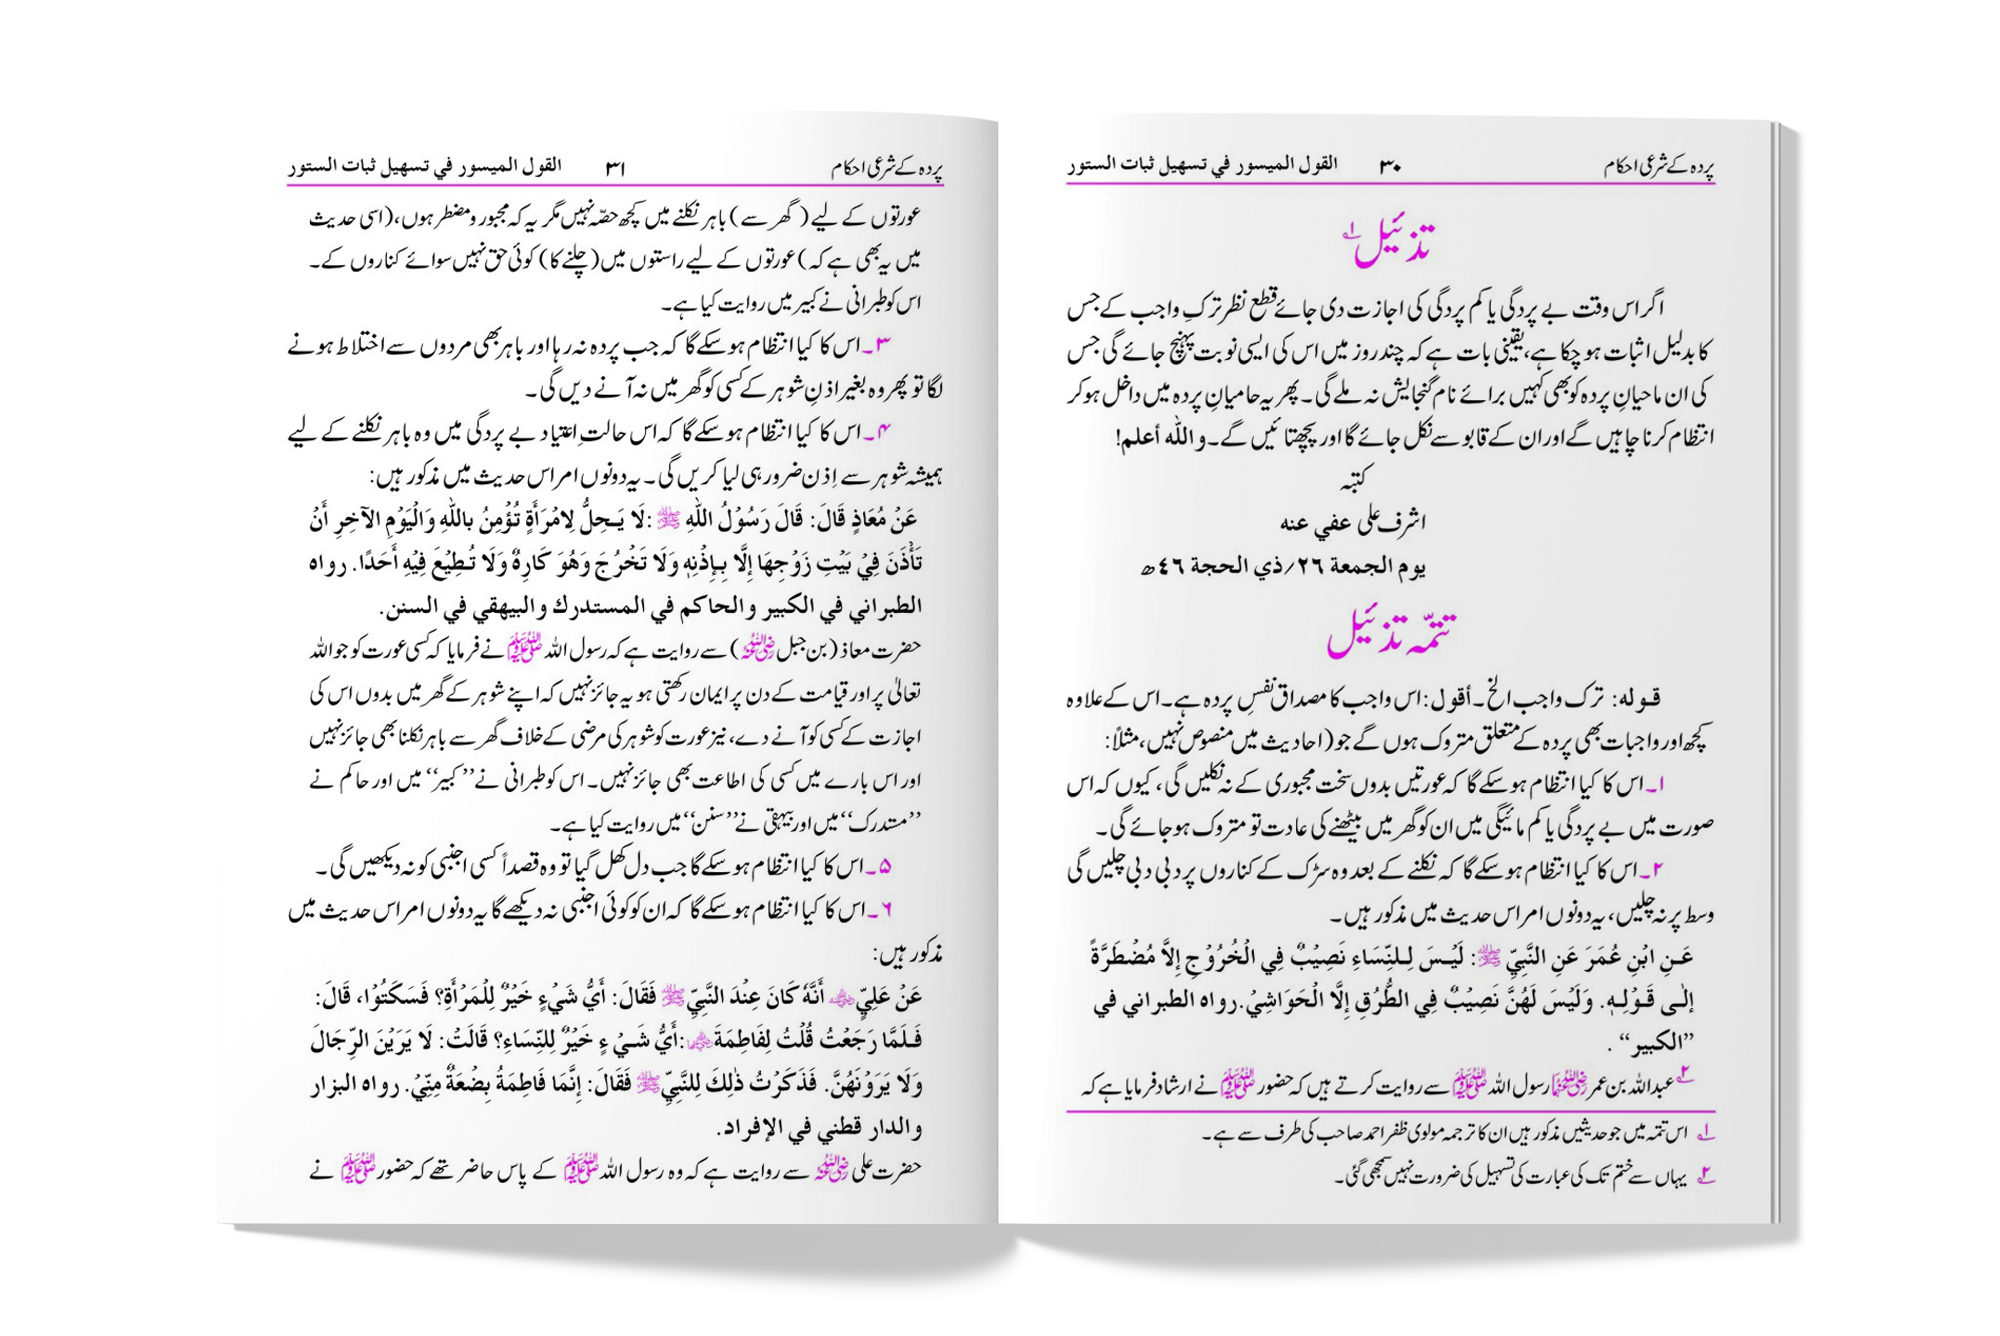 پردہ کے شرعی احکام ۳۰ القول الميسور في تسهيل ثبات الستور
تذئیل ۱؎
اگر اس وقت بے پردگی یا کم پردگی کی اجازت دی جائے قطع نظر ترکِ واجب کے جس
کا بدلیل اثبات ہو چکا ہے، یقینی بات ہے کہ چند روز میں اس کی ایسی نوبت پہنچ جائے گی جس
کی ان ماحیانِ پردہ کو بھی کہیں برائے نام گنجایش نہ ملے گی۔ پھر یہ حامیانِ پردہ میں داخل ہو کر
انتظام کرنا چاہیں گے اور ان کے قابو سے نکل جائے گا اور پچھتائیں گے۔ واللہ أعلم!
کتبہ
اشرف علی عفي عنه
يوم الجمعة ٢٦/ذي الحجة ٤٦ھ
تتمّہ تذئیل
قوله: ترک واجب الخ۔ أقول: اس واجب کا مصداق نفسِ پردہ ہے۔ اس کے علاوہ
کچھ اور واجبات بھی پردہ کے متعلق متروک ہوں گے جو (احادیث میں منصوص نہیں، مثلاً:
۱۔ اس کا کیا انتظام ہو سکے گا کہ عورتیں بدوں سخت مجبوری کے نہ نکلیں گی، کیوں کہ اس
صورت میں بے پردگی یا کم مائیگی میں ان کو گھر میں بیٹھنے کی عادت تو متروک ہو جائے گی۔
۲۔ اس کا کیا انتظام ہو سکے گا کہ نکلنے کے بعد وہ سڑک کے کناروں پر دبی دبی چلیں گی
وسط پر نہ چلیں، یہ دونوں امر اس حدیث میں مذکور ہیں۔
عَنِ ابْنِ عُمَرَ عَنِ النَّبِيِّ ﷺ: لَيْسَ لِلنِّسَاءِ نَصِيْبٌ فِي الْخُرُوْجِ إِلَّا مُضْطَرَّةً
إلٰى قَوْلِهٖ. وَلَيْسَ لَهُنَّ نَصِيْبٌ فِي الطُّرُقِ إِلَّا الْحَوَاشِيْ. رواه الطبراني في
”الكبير“.
۲؎ عبداللہ بن عمر رضی اللہ عنہما رسول اللہ ﷺ سے روایت کرتے ہیں کہ حضور ﷺ نے ارشاد فرمایا ہے کہ
۱؎ اس تتمّہ میں جو حدیثیں مذکور ہیں ان کا ترجمہ مولوی ظفر احمد صاحب کی طرف سے ہے۔
۲؎ یہاں سے ختم تک کی عبارت کی تسہیل کی ضرورت نہیں سمجھی گئی۔
پردہ کے شرعی احکام ۳۱ القول الميسور في تسهيل ثبات الستور
عورتوں کے لیے (گھر سے) باہر نکلنے میں کچھ حصّہ نہیں مگر یہ کہ مجبور و مضطر ہوں، (اسی حدیث
میں یہ بھی ہے کہ) عورتوں کے لیے راستوں میں (چلنے کا) کوئی حق نہیں سوائے کناروں کے۔
اس کو طبرانی نے کبیر میں روایت کیا ہے۔
۳۔ اس کا کیا انتظام ہو سکے گا کہ جب پردہ نہ رہا اور باہر بھی مردوں سے اختلاط ہونے
لگا تو پھر وہ بغیر اذنِ شوہر کے کسی کو گھر میں نہ آنے دیں گی۔
۴۔ اس کا کیا انتظام ہو سکے گا کہ اس حالتِ اعتیاد بے پردگی میں وہ باہر نکلنے کے لیے
ہمیشہ شوہر سے اِذن ضرور ہی لیا کریں گی۔ یہ دونوں امر اس حدیث میں مذکور ہیں:
عَنْ مُعَاذٍ قَالَ: قَالَ رَسُوْلُ اللهِ ﷺ: لَا يَحِلُّ لِامْرَأَةٍ تُؤْمِنُ بِاللهِ وَالْيَوْمِ الآخِرِ أَنْ
تَأْذَنَ فِيْ بَيْتِ زَوْجِهَا إِلَّا بِإِذْنِهٖ وَلَا تَخْرُجَ وَهُوَ كَارِهٌ وَلَا تُطِيْعَ فِيْهِ أَحَدًا. رواه
الطبراني في الكبير والحاكم في المستدرك والبيهقي في السنن.
حضرت معاذ (بن جبل رضی اللہ عنہ) سے روایت ہے کہ رسول اللہ ﷺ نے فرمایا کہ کسی عورت کو جو اللہ
تعالیٰ پر اور قیامت کے دن پر ایمان رکھتی ہو یہ جائز نہیں کہ اپنے شوہر کے گھر میں بدوں اس کی
اجازت کے کسی کو آنے دے، نیز عورت کو شوہر کی مرضی کے خلاف گھر سے باہر نکلنا بھی جائز نہیں
اور اس بارے میں کسی کی اطاعت بھی جائز نہیں۔ اس کو طبرانی نے ”کبیر“ میں اور حاکم نے
”مستدرک“ میں اور بیہقی نے ”سنن“ میں روایت کیا ہے۔
۵۔ اس کا کیا انتظام ہو سکے گا جب دل کھل گیا تو وہ قصداً کسی اجنبی کو نہ دیکھیں گی۔
۶۔ اس کا کیا انتظام ہو سکے گا کہ ان کو کوئی اجنبی نہ دیکھے گا یہ دونوں امر اس حدیث میں
مذکور ہیں:
عَنْ عَلِيٍّ رضی اللہ عنہ أَنَّهٗ كَانَ عِنْدَ النَّبِيِّ ﷺ فَقَالَ: أَيُّ شَيْءٍ خَيْرٌ لِلْمَرْأَةِ؟ فَسَكَتُوْا، قَالَ:
فَلَمَّا رَجَعْتُ قُلْتُ لِفَاطِمَةَ رضی اللہ عنہا: أَيُّ شَيْءٍ خَيْرٌ لِلنِّسَاءِ؟ قَالَتْ: لَا يَرَيْنَ الرِّجَالَ
وَلَا يَرَوْنَهُنَّ. فَذَكَرْتُ ذٰلِكَ لِلنَّبِيِّ ﷺ فَقَالَ: إِنَّمَا فَاطِمَةُ بِضْعَةٌ مِنِّيْ. رواه البزار
والدار قطني في الإفراد.
حضرت علی رضی اللہ عنہ سے روایت ہے کہ وہ رسول اللہ ﷺ کے پاس حاضر تھے کہ حضور ﷺ نے